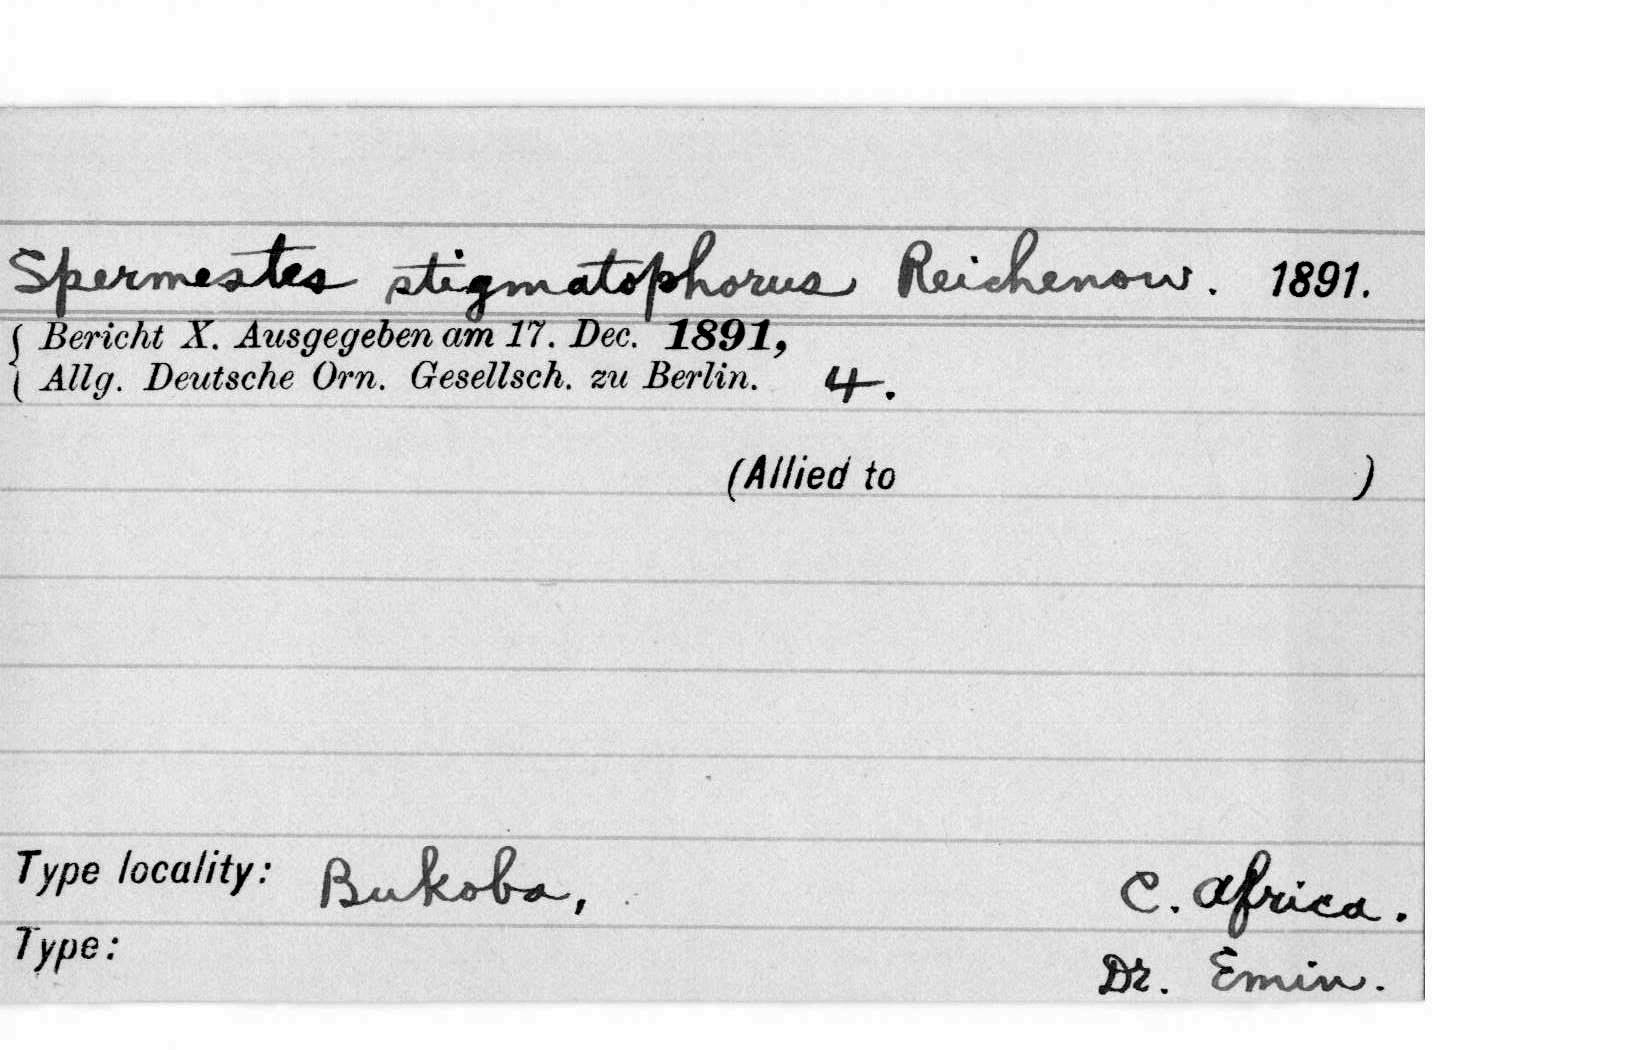 Spermestes stigmatophorus Reichenow. 1891.
{ Bericht X. Ausgegeben am 17. Dec. 1891,
Allg. Deutsche Orn. Gesellsch. zu Berlin. 4.
(Allied to )
Type locality: Bukoba, C. Africa.
Type: Dr. Emin.